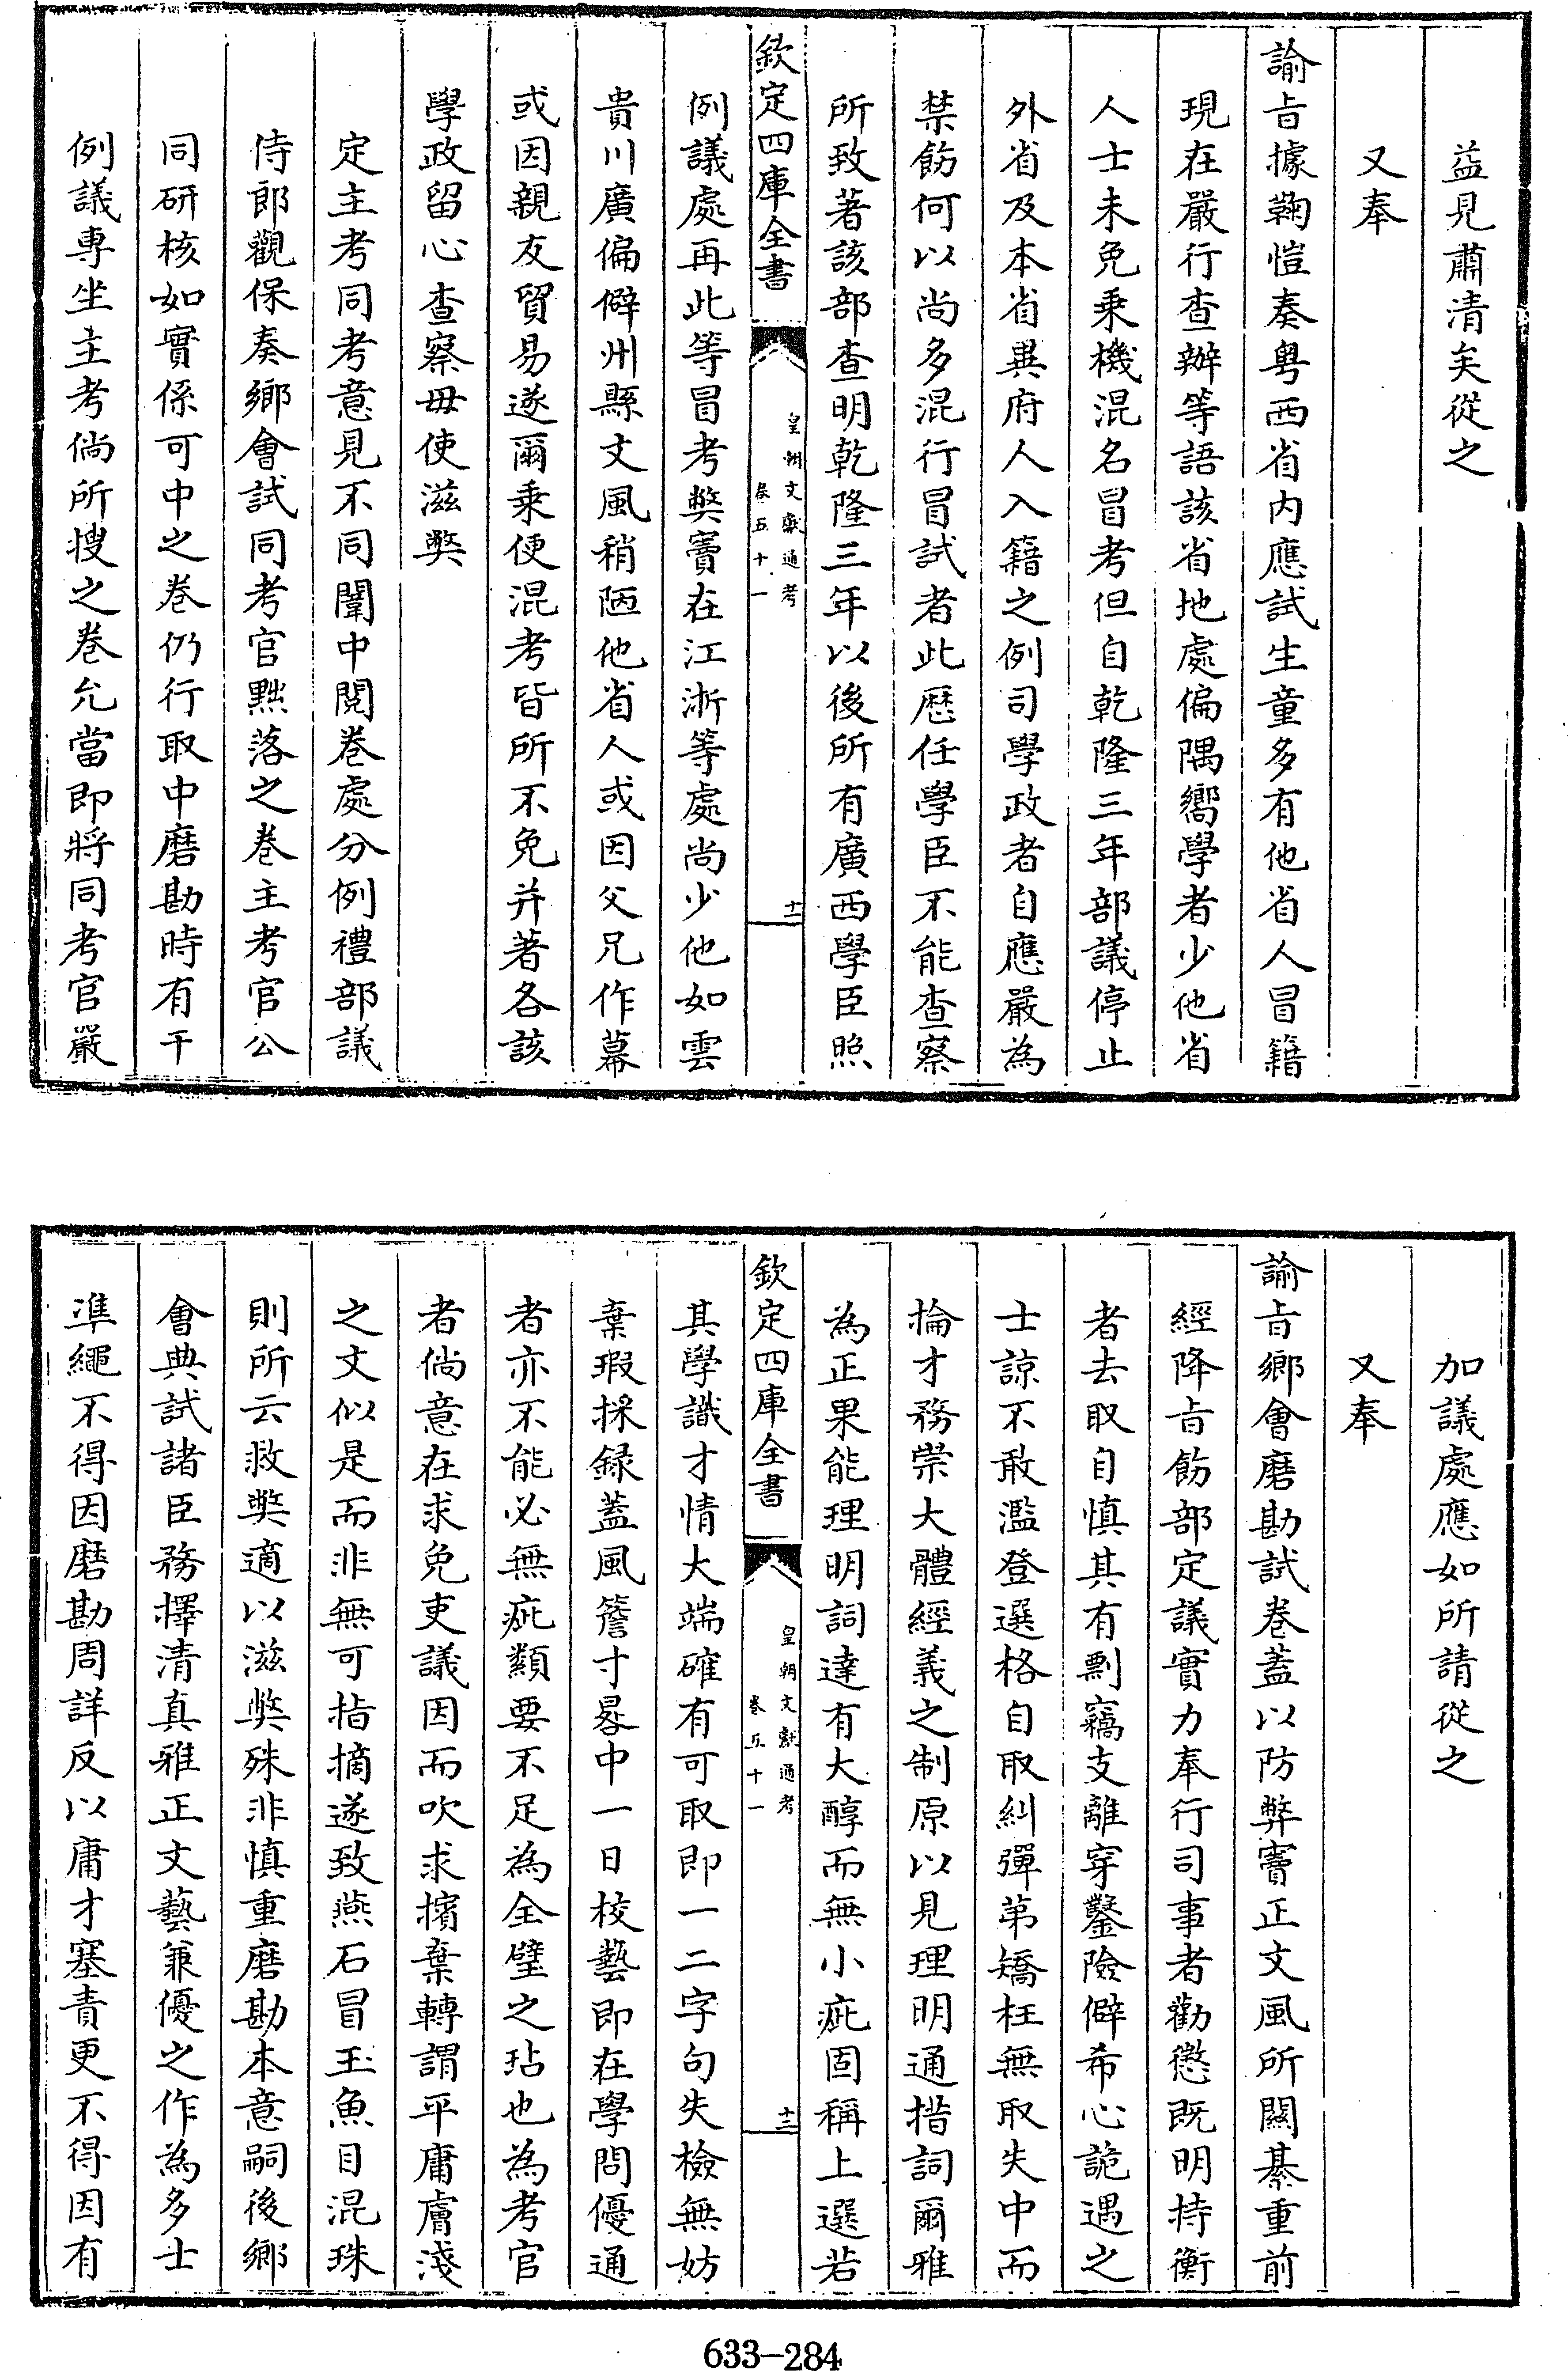 益見肅清矣從之
又奉
諭㫖據鞠愷奏粤西省内應試生童多有他省人冒籍
現在嚴行查辦等語該省地處偏隅嚮學者少他省
人士未免乗機混名冒考但自乾隆三年部議停止
外省及本省異府人入籍之例司學政者自應嚴為
禁飭何以尚多混行冒試者此歴任學臣不能查察
所致著該部查明乾隆三年以後所有廣西學臣照
欽定四庫全書
皇朝文獻通考
卷五十一
十一
例議處再此等冒考弊竇在江浙等處尚少他如雲
貴川廣偏僻州縣文風稍陋他省人或因父兄作幕
或因親友貿易遂爾乗便混考皆所不免并著各該
學政留心查察毋使滋弊
定主考同考意見不同闈中閱卷處分例禮部議
侍郎觀保奏鄉會試同考官黜落之卷主考官公
同研核如實係可中之卷仍行取中磨勘時有干
例議專坐主考倘所搜之卷允當即將同考官嚴
加議處應如所請從之
又奉
諭㫖鄉會磨勘試卷葢以防弊竇正文風所關綦重前
經降㫖飭部定議實力奉行司事者勸懲既明持衡
者去取自慎其有剽竊支離穿鑿險僻希心詭遇之
士諒不敢濫登選格自取糾彈第矯枉無取失中而
掄才務崇大體經義之制原以見理明通措詞爾雅
為正果能理明詞達有大醇而無小疵固稱上選若
欽定四庫全書
皇朝文獻通考
卷五十一
十二
其學識才情大端確有可取即一二字句失檢無妨
棄瑕採録葢風簷寸晷中一日校藝即在學問優通
者亦不能必無疵纇要不足為全璧之玷也為考官
者倘意在求免吏議因而吹求擯棄轉謂平庸膚淺
之文似是而非無可指摘遂致燕石冒玉魚目混珠
則所云救弊適以滋弊殊非慎重磨勘本意嗣後鄉
會典試諸臣務擇清真雅正文藝兼優之作為多士
準繩不得因磨勘周詳反以庸才塞責更不得因有
633-284